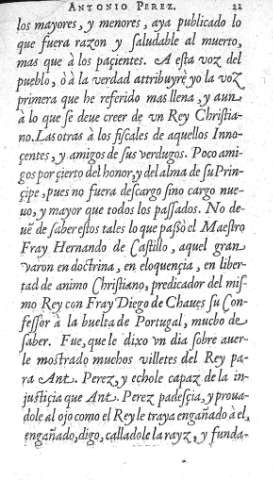 ANTONIO PEREZ. 22
los mayores, y menores, aya publicado lo
que fuera razon y saludable al muerto,
mas que à los paçientes. A esta voz del
pueblo, ò à la verdad attribuyrè yo la voz
primera que he referido mas llena, y aun
à lo que se deue creer de vn Rey Christia-
no. Las otras à los fiscales de aquellos Inno-
çentes, y amigos de sus verdugos. Poco ami-
gos por çierto del honor, y del alma de su Prin-
çipe, pues no fuera descargo sino cargo nue-
uo, y mayor que todos los passados. No de-
uẽ de saber estos tales lo que passò el Maestro
Fray Hernando de Castillo, aquel gran
varon en doctrina, en eloquençia, en liber-
tad de animo Christiano, predicador del mis-
mo Rey con Fray Diego de Chaues su Con-
fessor à la buelta de Portugal, mucho de
saber. Fue, que le dixo vn dia sobre auer-
le mostrado muchos villetes del Rey pa-
ra Ant. Perez, y echole capaz de la in-
justiçia que Ant. Perez padesçia, y proua-
dole al ojo como el Rey le traya engañado à el,
engañado, digo, calladole la rayz, y funda-